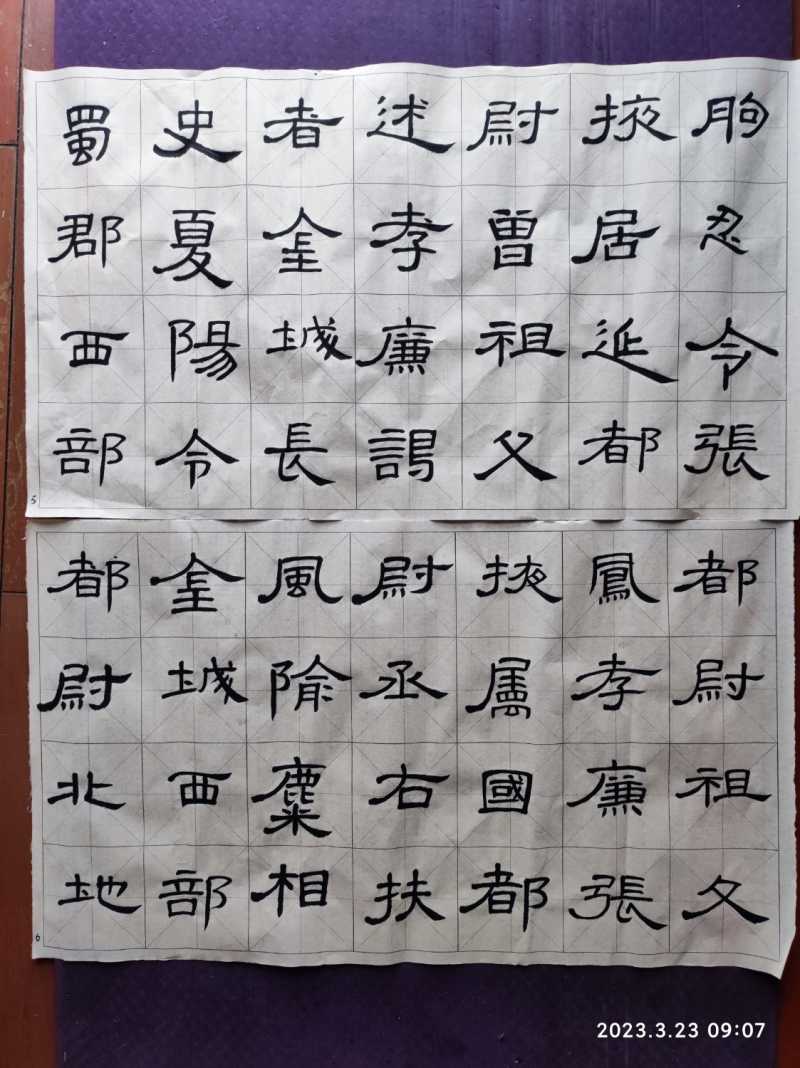 朐忍令張
掖居延都
尉曾祖父
述孝廉謁
者金城長
史夏陽令
蜀郡西部
5
都尉祖父
鳳孝廉張
掖屬國都
尉丞右扶
風隃麋相
金城西部
都尉北地
6
2023.3.23 09:07